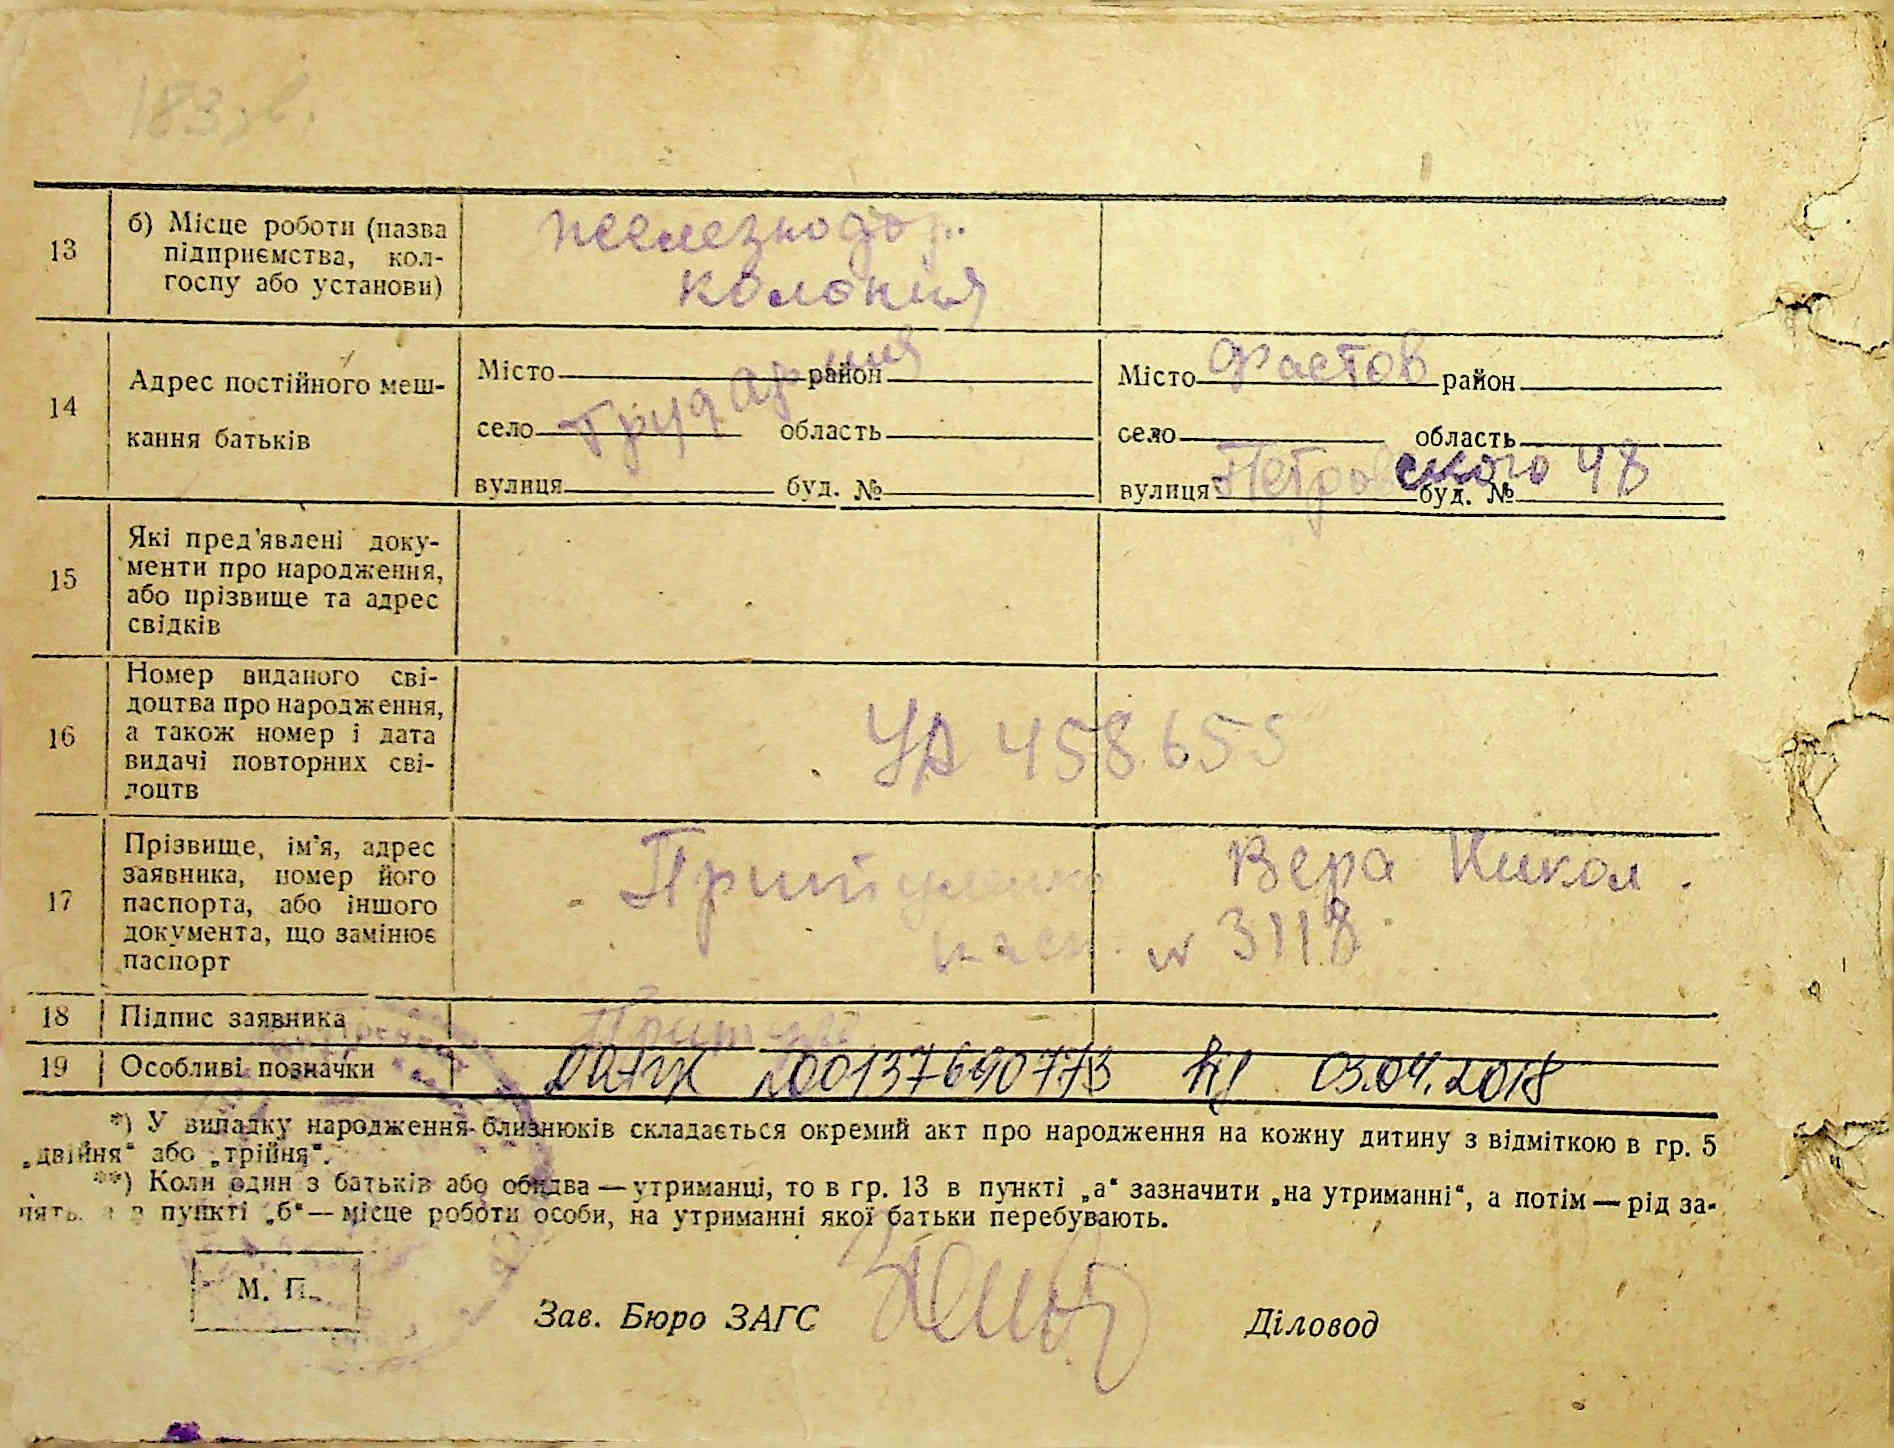 183
13
б) Місце роботи (назва
підприємства, кол-
госпу або установи)
железнодор.
колония
14
Адрес постійного меш-
кання батьків
Місто район
Труд армия
село область
вулиця буд. №
Місто Фастов район
село область
вулиця Петровского 48 буд. №
15
Які пред'явлені доку-
менти про народження,
або прізвище та адрес
свідків
16
Номер виданого сві-
доцтва про народження,
а також номер і дата
видачі повторних сві-
доцтв
УА 458.655
17
Прізвище, ім'я, адрес
заявника, номер його
паспорта, або іншого
документа, що замінює
паспорт
Притуленко Вера Никол.
пасп. № 3118
18 Підпис заявника
19 Особливі позначки
00137690773 03.04.2018
*) У випадку народження близнюків складається окремий акт про народження на кожну дитину з відміткою в гр. 5
„двійня“ або „трійня“.
**) Коли один з батьків або обидва — утриманці, то в гр. 13 в пункті „а“ зазначити „на утриманні“, а потім — рід за-
нять, а в пункті „б“ — місце роботи особи, на утриманні якої батьки перебувають.
М. П.
Зав. Бюро ЗАГС
Діловод